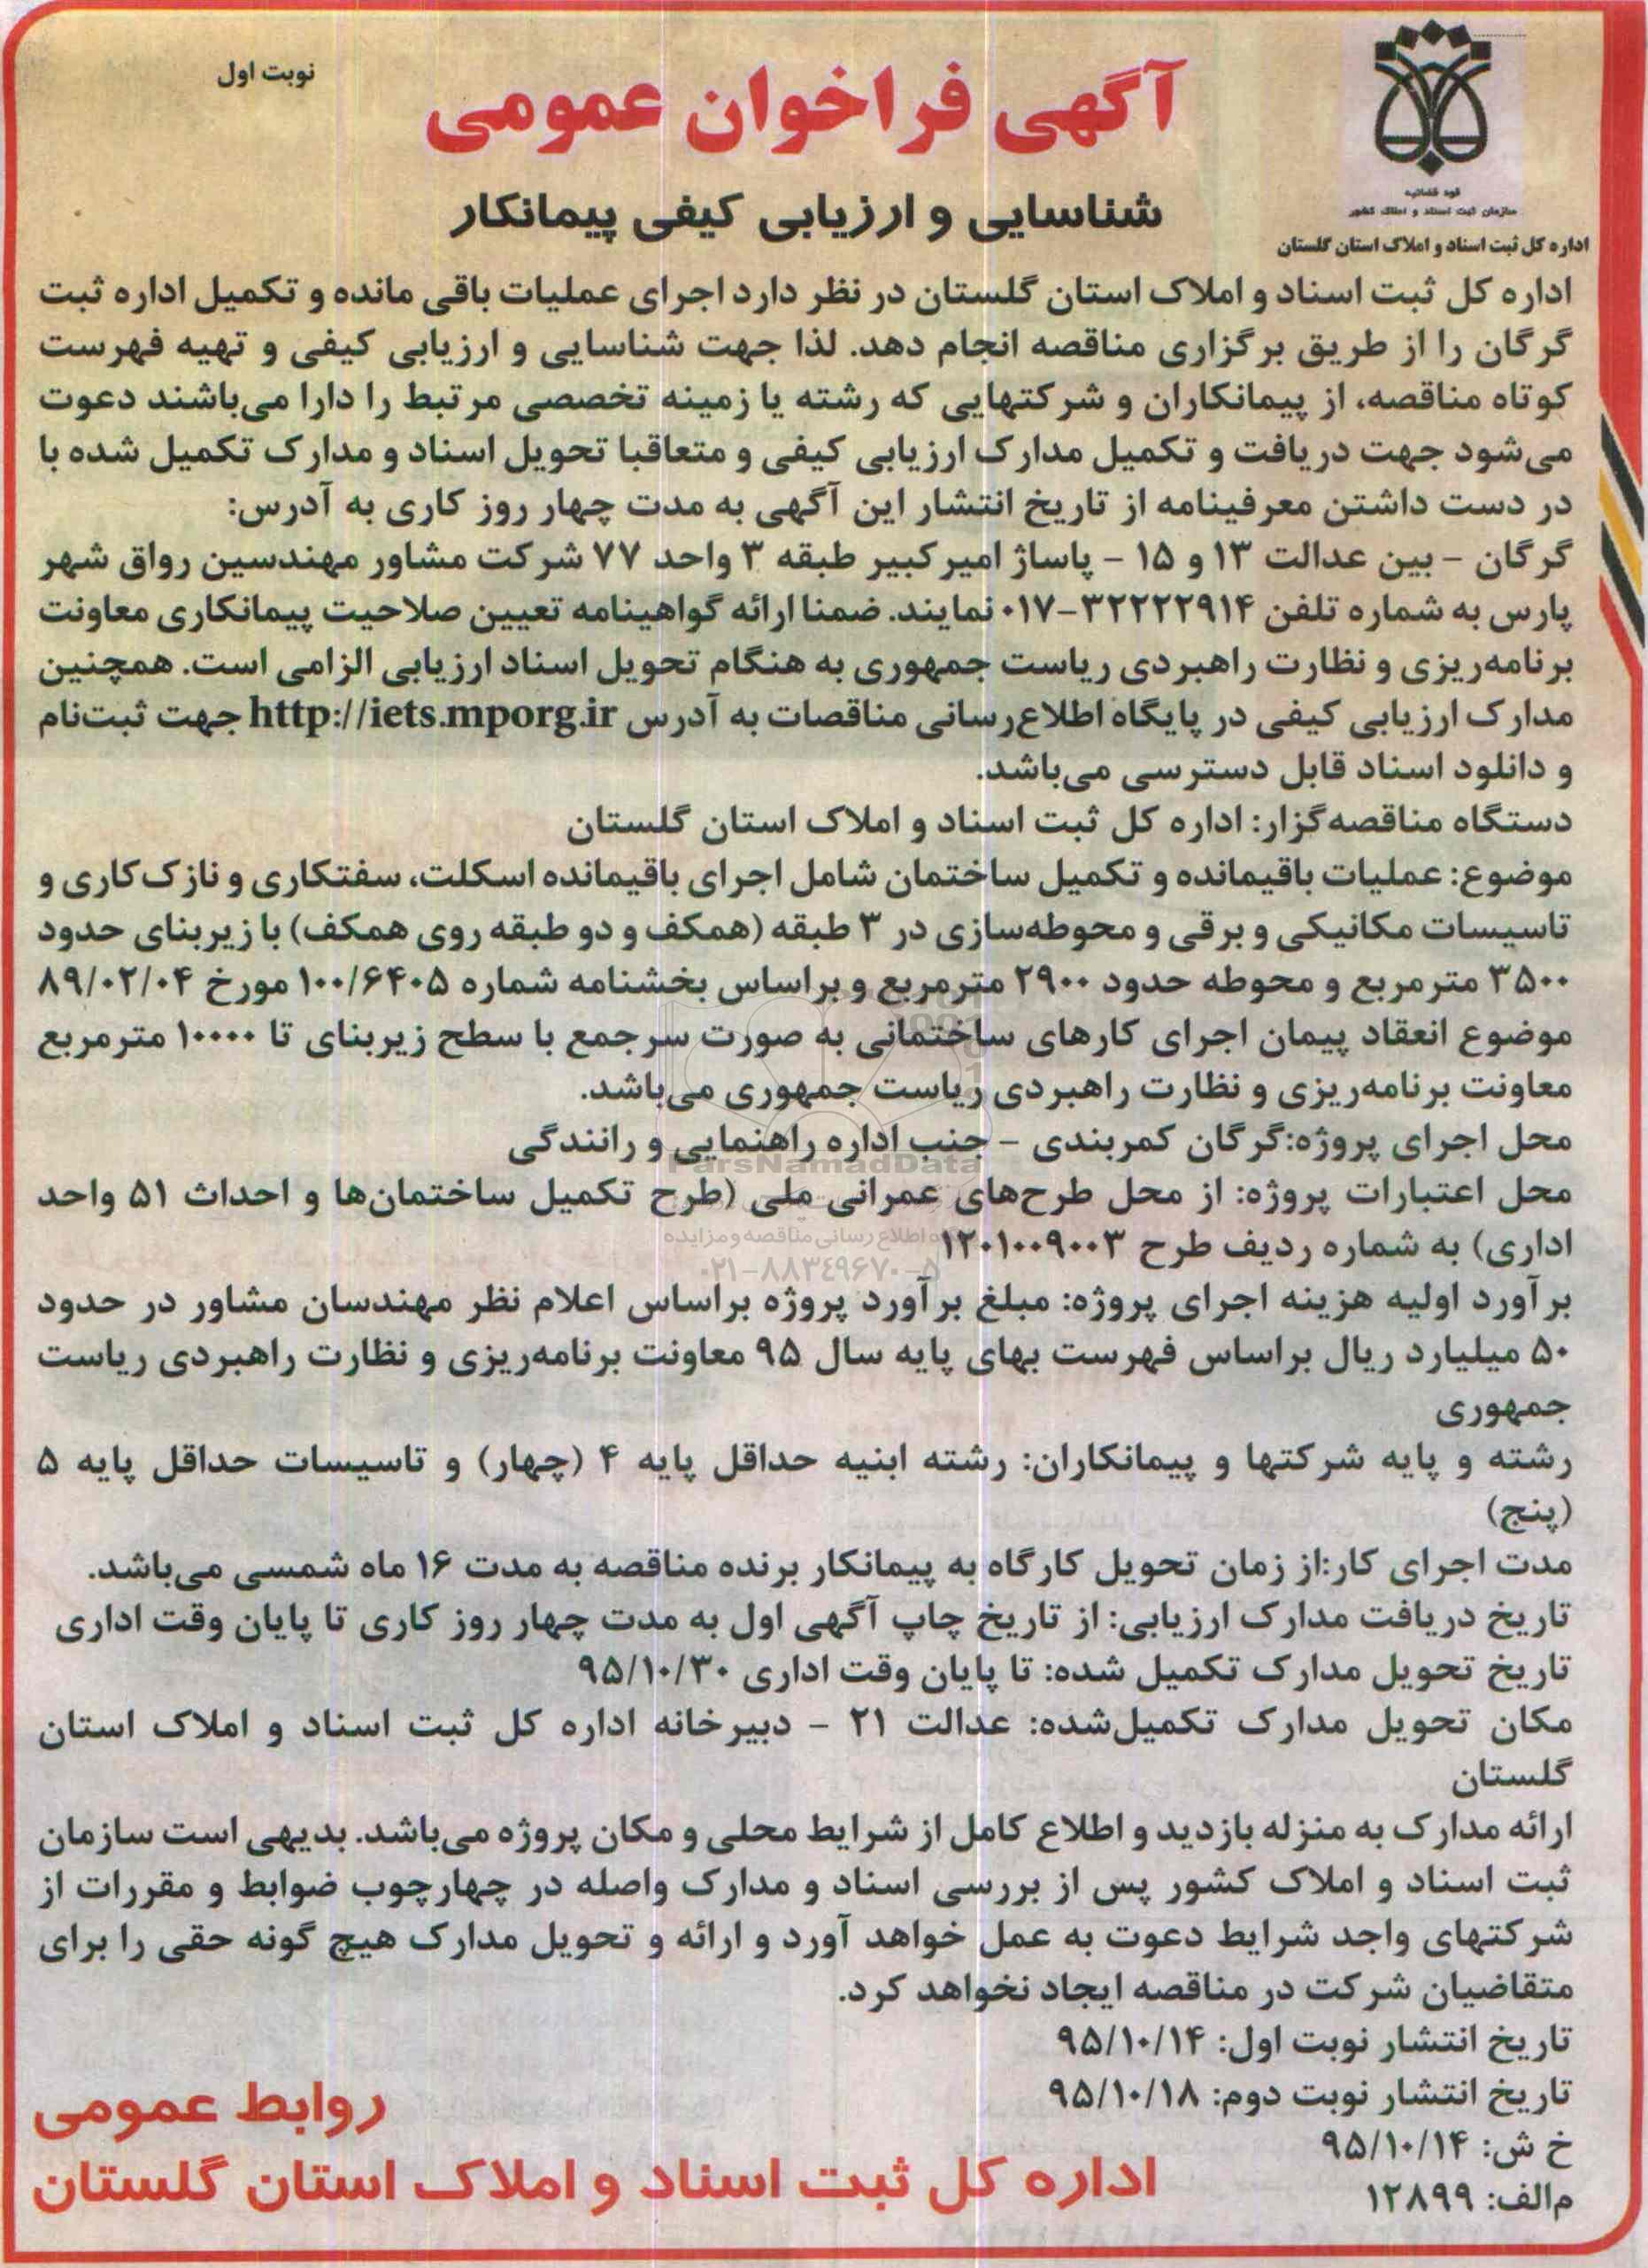 نوبت اول
آگهی فراخوان عمومی
شناسایی و ارزیابی کیفی پیمانکار
قوه قضائیه
سازمان ثبت اسناد و املاک کشور
اداره کل ثبت اسناد و املاک استان گلستان
اداره کل ثبت اسناد و املاک استان گلستان در نظر دارد اجرای عملیات باقی مانده و تکمیل اداره ثبت
گرگان را از طریق برگزاری مناقصه انجام دهد. لذا جهت شناسایی و ارزیابی کیفی و تهیه فهرست
کوتاه مناقصه، از پیمانکاران و شرکتهایی که رشته یا زمینه تخصصی مرتبط را دارا می‌باشند دعوت
می‌شود جهت دریافت و تکمیل مدارک ارزیابی کیفی و متعاقبا تحویل اسناد و مدارک تکمیل شده با
در دست داشتن معرفینامه از تاریخ انتشار این آگهی به مدت چهار روز کاری به آدرس:
گرگان - بین عدالت ۱۳ و ۱۵ - پاساژ امیرکبیر طبقه ۳ واحد ۷۷ شرکت مشاور مهندسین رواق شهر
پارس به شماره تلفن ۳۲۲۲۲۹۱۴-۰۱۷ نمایند. ضمنا ارائه گواهینامه تعیین صلاحیت پیمانکاری معاونت
برنامه‌ریزی و نظارت راهبردی ریاست جمهوری به هنگام تحویل اسناد ارزیابی الزامی است. همچنین
مدارک ارزیابی کیفی در پایگاه اطلاع‌رسانی مناقصات به آدرس http://iets.mporg.ir جهت ثبت‌نام
و دانلود اسناد قابل دسترسی می‌باشد.
دستگاه مناقصه‌گزار: اداره کل ثبت اسناد و املاک استان گلستان
موضوع: عملیات باقیمانده و تکمیل ساختمان شامل اجرای باقیمانده اسکلت، سفتکاری و نازک‌کاری و
تاسیسات مکانیکی و برقی و محوطه‌سازی در ۳ طبقه (همکف و دو طبقه روی همکف) با زیربنای حدود
۳۵۰۰ مترمربع و محوطه حدود ۲۹۰۰ مترمربع و براساس بخشنامه شماره ۱۰۰/۶۴۰۵ مورخ ۸۹/۰۲/۰۴
موضوع انعقاد پیمان اجرای کارهای ساختمانی به صورت سرجمع با سطح زیربنای تا ۱۰۰۰۰ مترمربع
معاونت برنامه‌ریزی و نظارت راهبردی ریاست جمهوری می‌باشد.
محل اجرای پروژه:گرگان کمربندی - جنب اداره راهنمایی و رانندگی
ParsNamadData
محل اعتبارات پروژه: از محل طرح‌های عمرانی ملی (طرح تکمیل ساختمان‌ها و احداث ۵۱ واحد
اداری) به شماره ردیف طرح ۱۲۰۱۰۰۹۰۰۳
اطلاع رسانی مناقصه و مزایده
۰۲۱-۸۸۳۴۹۶۷۰-۵
برآورد اولیه هزینه اجرای پروژه: مبلغ برآورد پروژه براساس اعلام نظر مهندسان مشاور در حدود
۵۰ میلیارد ریال براساس فهرست بهای پایه سال ۹۵ معاونت برنامه‌ریزی و نظارت راهبردی ریاست
جمهوری
رشته و پایه شرکتها و پیمانکاران: رشته ابنیه حداقل پایه ۴ (چهار) و تاسیسات حداقل پایه ۵
(پنج)
مدت اجرای کار:از زمان تحویل کارگاه به پیمانکار برنده مناقصه به مدت ۱۶ ماه شمسی می‌باشد.
تاریخ دریافت مدارک ارزیابی: از تاریخ چاپ آگهی اول به مدت چهار روز کاری تا پایان وقت اداری
تاریخ تحویل مدارک تکمیل شده: تا پایان وقت اداری ۹۵/۱۰/۳۰
مکان تحویل مدارک تکمیل‌شده: عدالت ۲۱ - دبیرخانه اداره کل ثبت اسناد و املاک استان
گلستان
ارائه مدارک به منزله بازدید و اطلاع کامل از شرایط محلی و مکان پروژه می‌باشد. بدیهی است سازمان
ثبت اسناد و املاک کشور پس از بررسی اسناد و مدارک واصله در چهارچوب ضوابط و مقررات از
شرکتهای واجد شرایط دعوت به عمل خواهد آورد و ارائه و تحویل مدارک هیچ گونه حقی را برای
متقاضیان شرکت در مناقصه ایجاد نخواهد کرد.
تاریخ انتشار نوبت اول: ۹۵/۱۰/۱۴
تاریخ انتشار نوبت دوم: ۹۵/۱۰/۱۸
خ ش: ۹۵/۱۰/۱۴
م‌الف: ۱۲۸۹۹
روابط عمومی
اداره کل ثبت اسناد و املاک استان گلستان